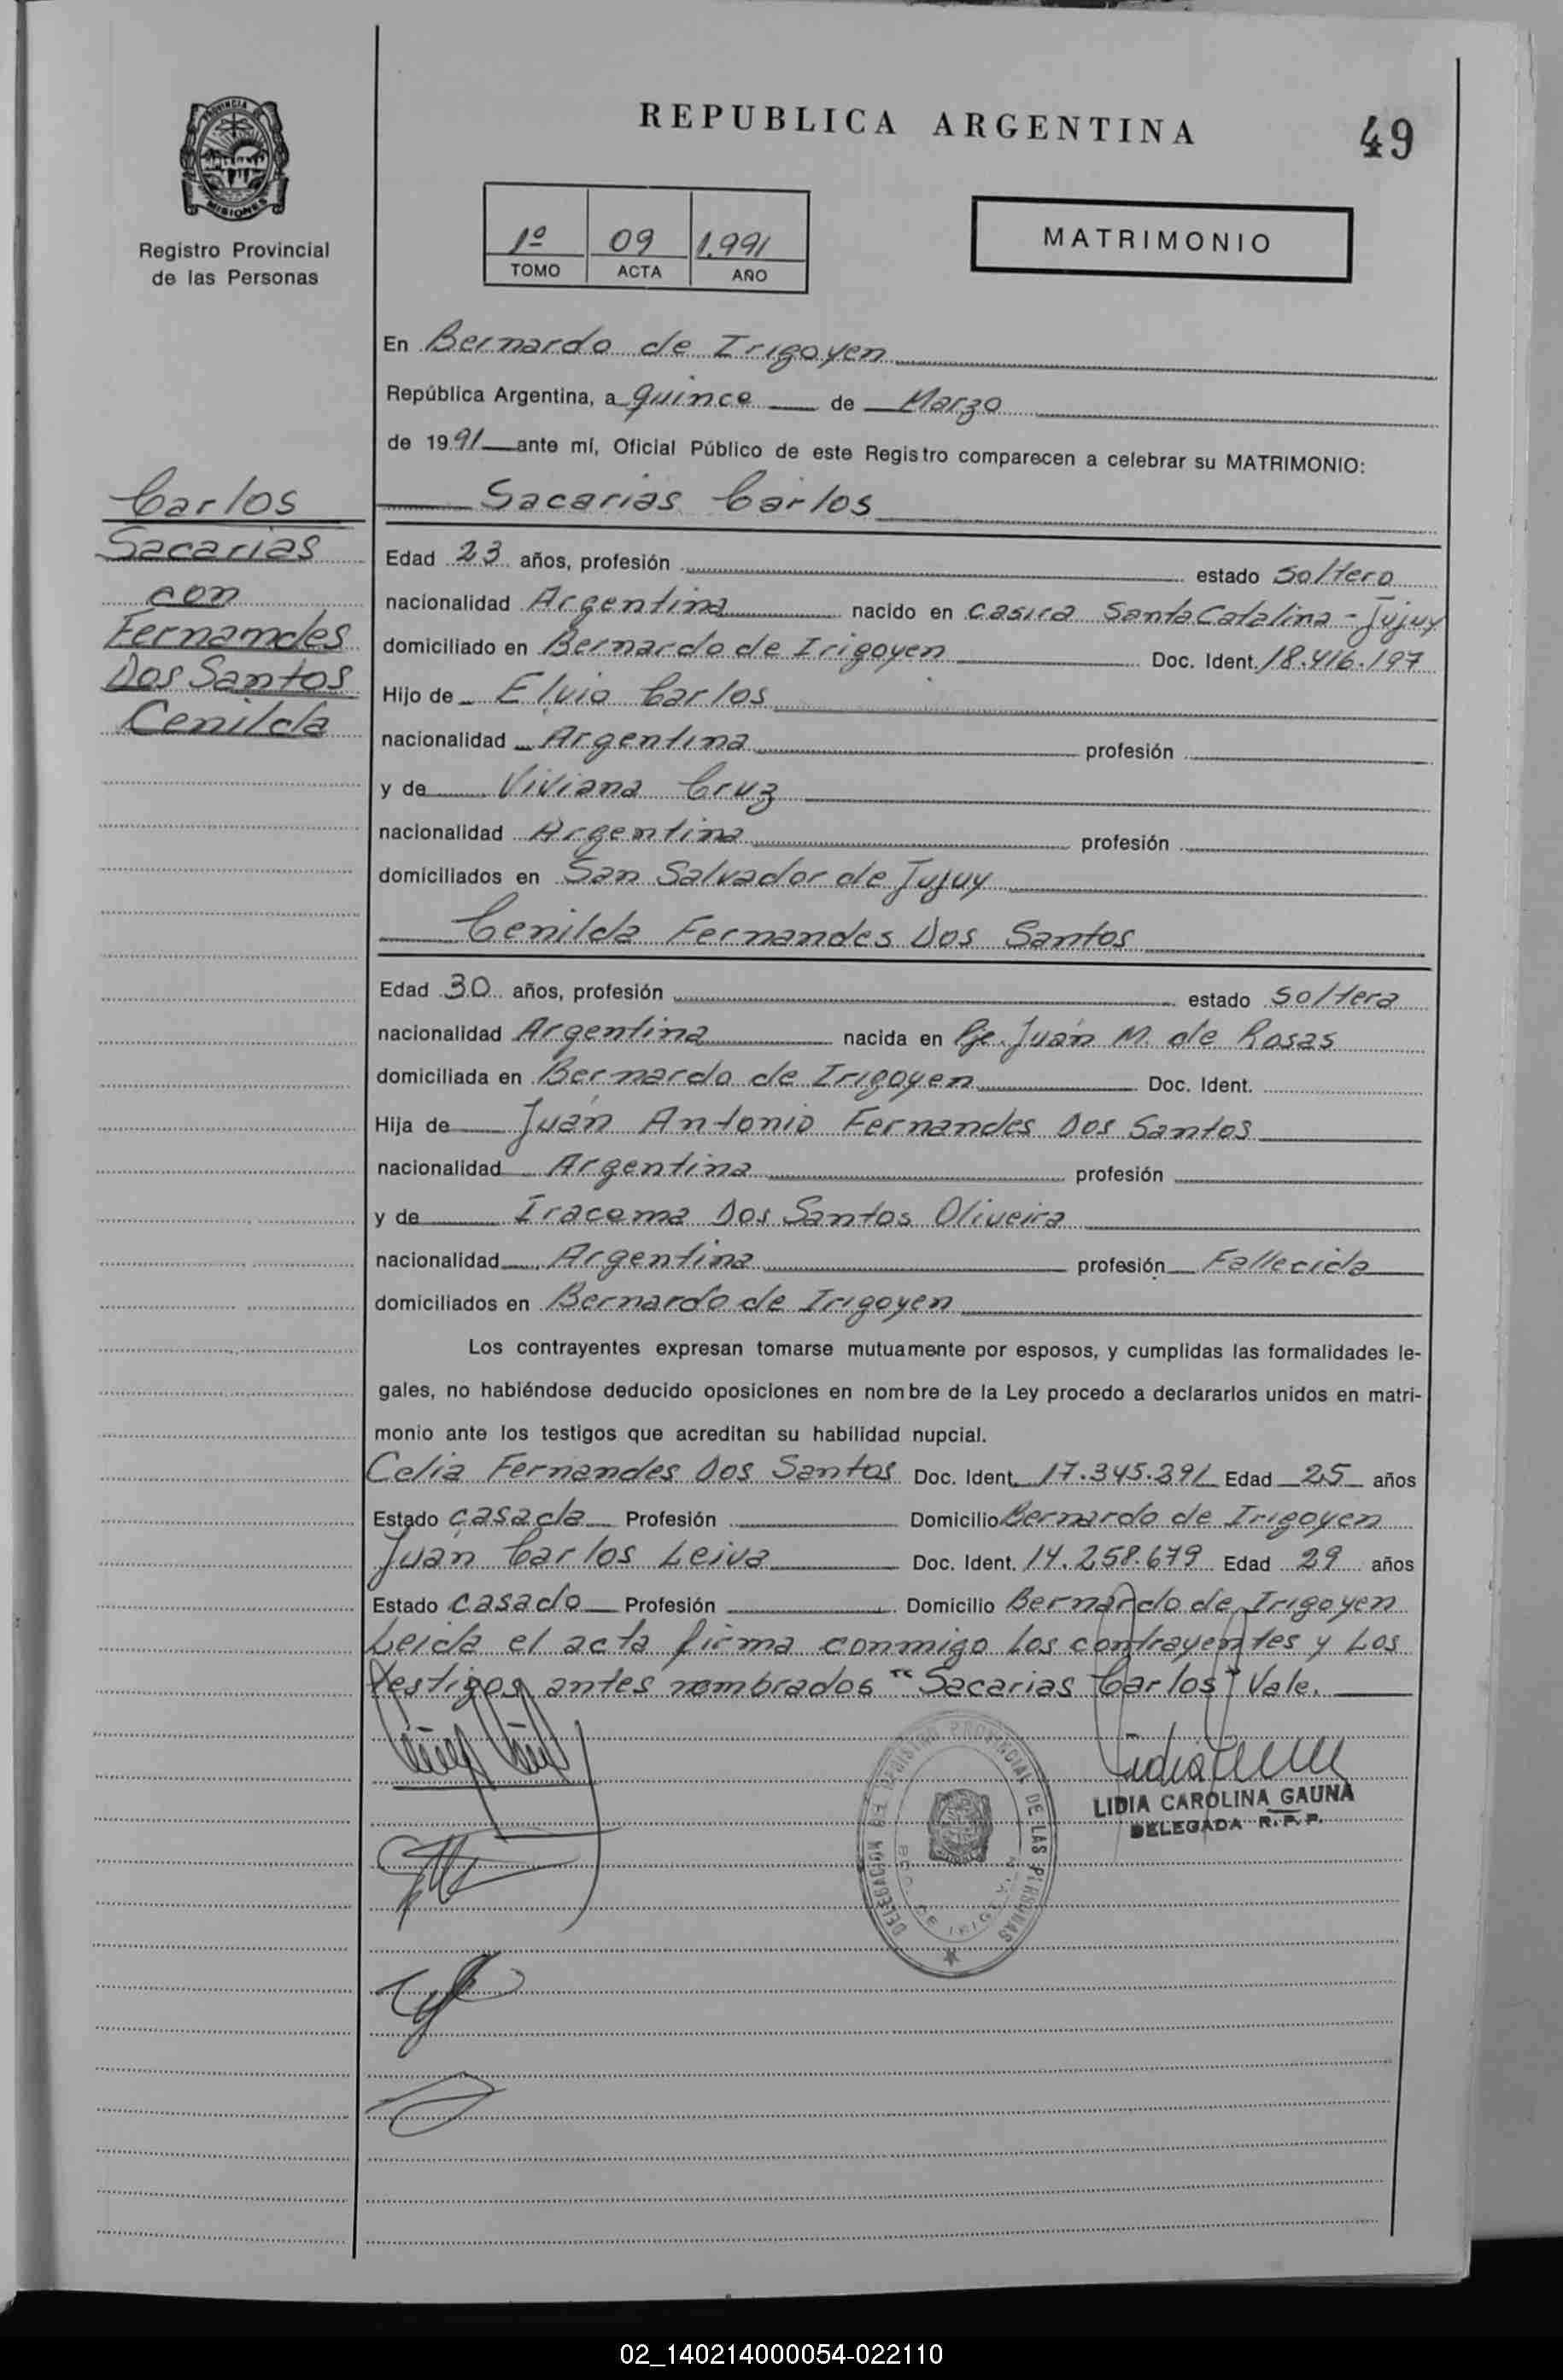 PROVINCIA
MISIONES
Registro Provincial
de las Personas
REPUBLICA ARGENTINA
49
1º 09 1.991
TOMO ACTA AÑO
MATRIMONIO
En Bernardo de Irigoyen
República Argentina, a quince de Marzo
de 1991 ante mí, Oficial Público de este Registro comparecen a celebrar su MATRIMONIO:
Carlos
Sacarias
con
Fernandes
Dos Santos
Cenilda
Sacarias Carlos
Edad 23 años, profesión estado Soltero
nacionalidad Argentina nacido en Casira Santa Catalina - Jujuy
domiciliado en Bernardo de Irigoyen Doc. Ident. 18.416.197
Hijo de Elvio Carlos
nacionalidad Argentina profesión
y de Viviana Cruz
nacionalidad Argentina profesión
domiciliados en San Salvador de Jujuy
Cenilda Fernandes Dos Santos
Edad 30 años, profesión estado Soltera
nacionalidad Argentina nacida en Pje. Juan M. de Rosas
domiciliada en Bernardo de Irigoyen Doc. Ident.
Hija de Juan Antonio Fernandes Dos Santos
nacionalidad Argentina profesión
y de Iracema Dos Santos Oliveira
nacionalidad Argentina profesión Fallecida
domiciliados en Bernardo de Irigoyen
Los contrayentes expresan tomarse mutuamente por esposos, y cumplidas las formalidades le-
gales, no habiéndose deducido oposiciones en nombre de la Ley procedo a declararlos unidos en matri-
monio ante los testigos que acreditan su habilidad nupcial.
Celia Fernandes Dos Santos Doc. Ident. 17.345.291 Edad 25 años
Estado Casada Profesión Domicilio Bernardo de Irigoyen
Juan Carlos Leiva Doc. Ident. 14.258.679 Edad 29 años
Estado Casado Profesión Domicilio Bernardo de Irigoyen
Leida el acta firma conmigo los contrayentes y los
testigos antes nombrados "Sacarias Carlos" Vale.
DELEGACION DEL REGISTRO PROVINCIAL DE LAS PERSONAS
BDO. DE IRIGOYEN
LIDIA CAROLINA GAUNA
DELEGADA R.P.P.
02_140214000054-022110